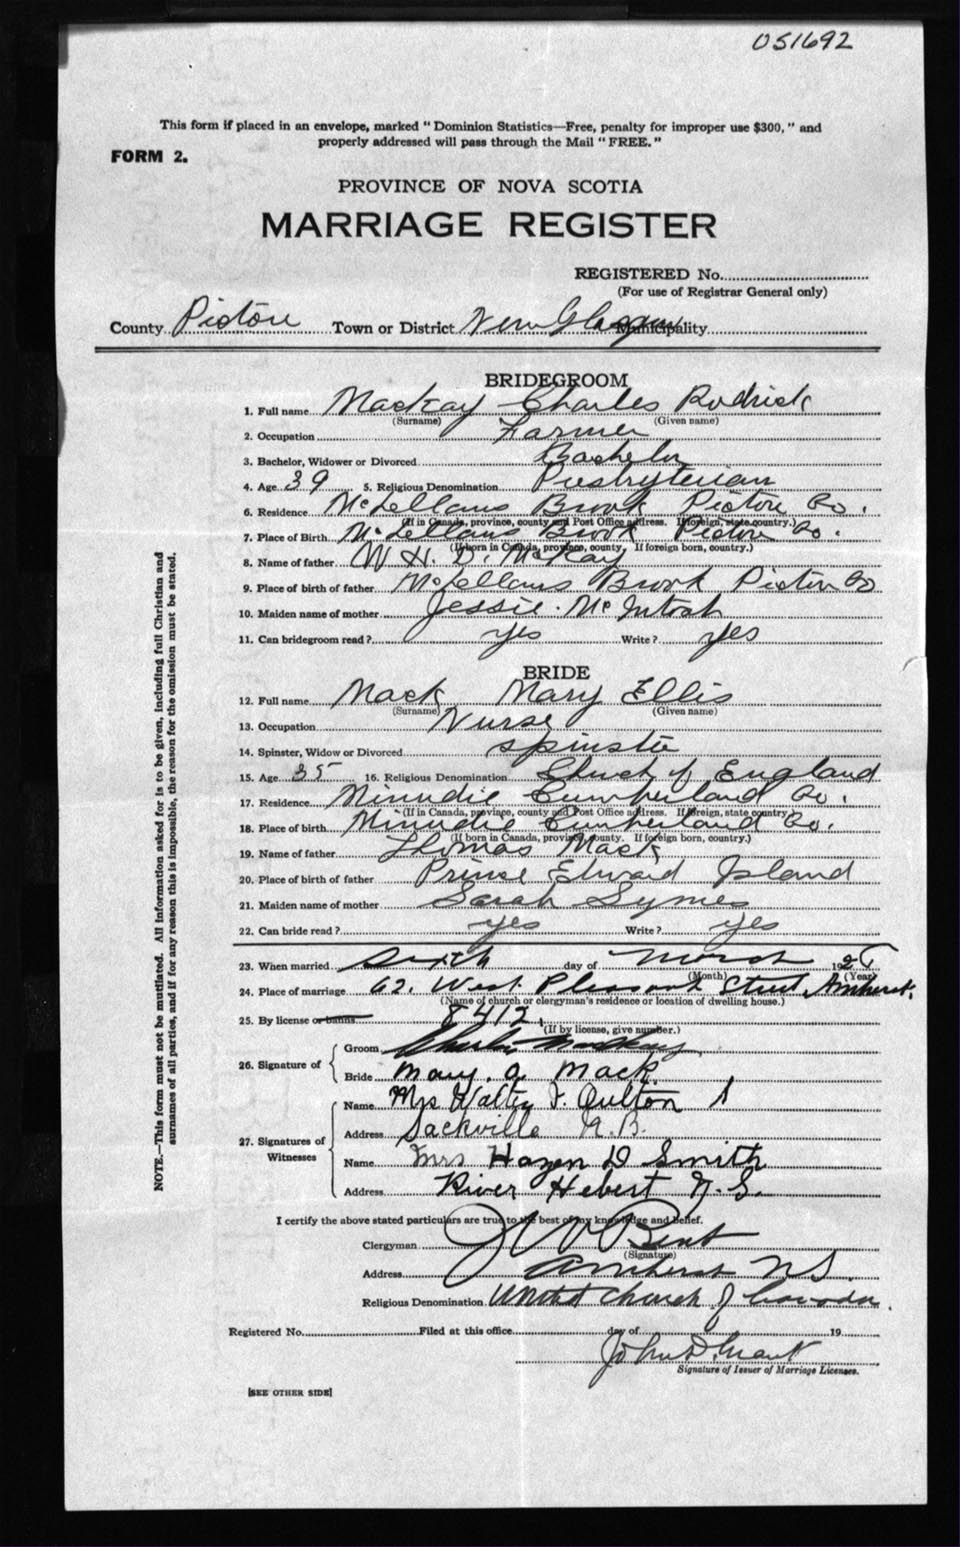 051692
This form if placed in an envelope, marked "Dominion Statistics—Free, penalty for improper use $300," and
properly addressed will pass through the Mail "FREE."
FORM 2.
PROVINCE OF NOVA SCOTIA
MARRIAGE REGISTER
REGISTERED No.
(For use of Registrar General only)
County Pictou Town or District New Glasgow Municipality
BRIDEGROOM
1. Full name MacKay Charles Rodrick
(Surname) (Given name)
2. Occupation Farmer
3. Bachelor, Widower or Divorced Bachelor
4. Age 39 5. Religious Denomination Presbyterian
6. Residence McLellans Brook Pictou Co.
(If in Canada, province, county and Post Office address. If foreign, state country.)
7. Place of Birth McLellans Brook Pictou Co.
(If born in Canada, province, county. If foreign born, country.)
8. Name of father W. H. D. McKay
9. Place of birth of father McLellans Brook Pictou Co
10. Maiden name of mother Jessie McIntosh
11. Can bridegroom read? yes Write? yes
BRIDE
12. Full name Mack Mary Ellis
(Surname) (Given name)
13. Occupation Nurse
14. Spinster, Widow or Divorced spinster
15. Age 35 16. Religious Denomination Church of England
17. Residence Minudie Cumberland Co.
(If in Canada, province, county and Post Office address. If foreign, state country.)
18. Place of birth Minudie Cumberland Co.
(If born in Canada, province, county. If foreign born, country.)
19. Name of father Thomas Mack
20. Place of birth of father Prince Edward Island
21. Maiden name of mother Sarah Symes
22. Can bride read? yes Write? yes
23. When married Sixth day of March 192
(Month) (Year)
24. Place of marriage 62. West Pleasant Street, Amherst.
(Name of church or clergyman's residence or location of dwelling house.)
25. By license or banns 8412
(If by license, give number.)
26. Signature of
Groom Charles MacKay
Bride Mary. a. Mack.
27. Signatures of Witnesses
Name Mrs Walter F. Oulton
Address Sackville N.B.
Name Mrs Hazen D Smith
Address River Hebert N.S.
I certify the above stated particulars are true to the best of my knowledge and belief.
Clergyman Bent
(Signature)
Address Amherst N.S.
Religious Denomination United Church of Canada.
Registered No. Filed at this office day of 19
John D. Grant
Signature of Issuer of Marriage Licenses.
[SEE OTHER SIDE]
NOTE.—This form must not be mutilated. All information asked for is to be given, including full Christian and
surnames of all parties, and if for any reason this is impossible, the reason for the omission must be stated.